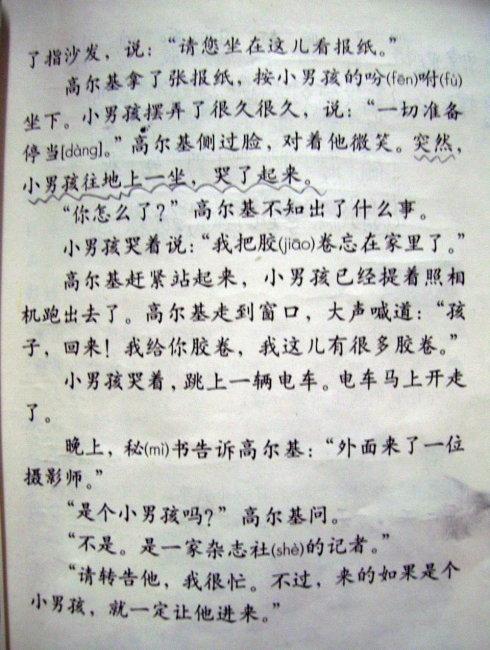 了指沙发，说：“请您坐在这儿看报纸。”
高尔基拿了张报纸，按小男孩的吩(fēn)咐(fù)
坐下。小男孩摆弄了很久很久，说：“一切准备
停当[dàng]。”高尔基侧过脸，对着他微笑。突然，
小男孩往地上一坐，哭了起来。
“你怎么了？”高尔基不知出了什么事。
小男孩哭着说：“我把胶(jiāo)卷忘在家里了。”
高尔基赶紧站起来，小男孩已经提着照相
机跑出去了。高尔基走到窗口，大声喊道：“孩
子，回来！我给你胶卷，我这儿有很多胶卷。”
小男孩哭着，跳上一辆电车。电车马上开走
了。
晚上，秘(mì)书告诉高尔基：“外面来了一位
摄影师。”
“是个小男孩吗？”高尔基问。
“不是。是一家杂志社(shè)的记者。”
“请转告他，我很忙。不过，来的如果是个
小男孩，就一定让他进来。”